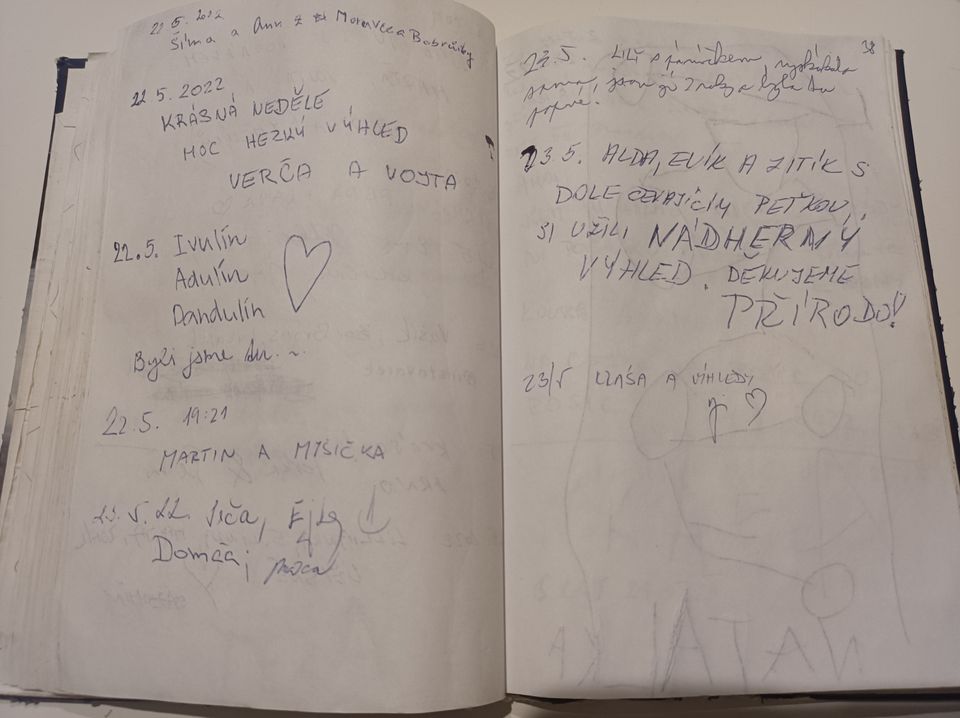 22.5.2022
Šíma a Ann z Moravce a Bobrůvky
22 5. 2022
KRÁSNÁ NEDĚLE
MOC HEZKÝ VÝHLED
VERČA A VOJTA
22.5. Ivulín
Adulín
Dandulín
Byli jsme tu...
22.5. 19:21
MARTIN A MYŠIČKA
V. 22.
Domča
38
22.5. Lili s páníčkem,
jsou
poprvé.
23 5. ALDA, EVÍK A ZITÍK S
DOLE ČEKAJÍCÍM PEŤKOU,
SI UŽILI NÁDHERNÝ
VÝHLED. DĚKUJEME
PŘÍRODO!
23/5 KRÁSA A VÝHLEDY
NATÁLKA